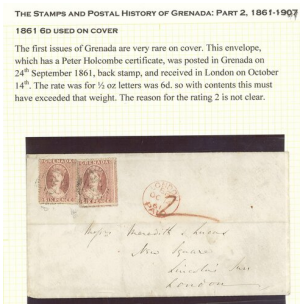 THE STAMPS AND POSTAL HISTORY OF GRENADA: PART 2, 1861-1907
1861 6D USED ON COVER
The first issues of Grenada are very rare on cover. This envelope,
which has a Peter Holcombe certificate, was posted in Grenada on
24th September 1861, back stamp, and received in London on October
14th. The rate for ½ oz letters was 6d. so with contents this must
have exceeded that weight. The reason for the rating 2 is not clear.
GRENADA GRENADA
SIX PENCE SIX PENCE
2
Messrs Meredith & Lucas
New Square
Lincoln's Inn
London